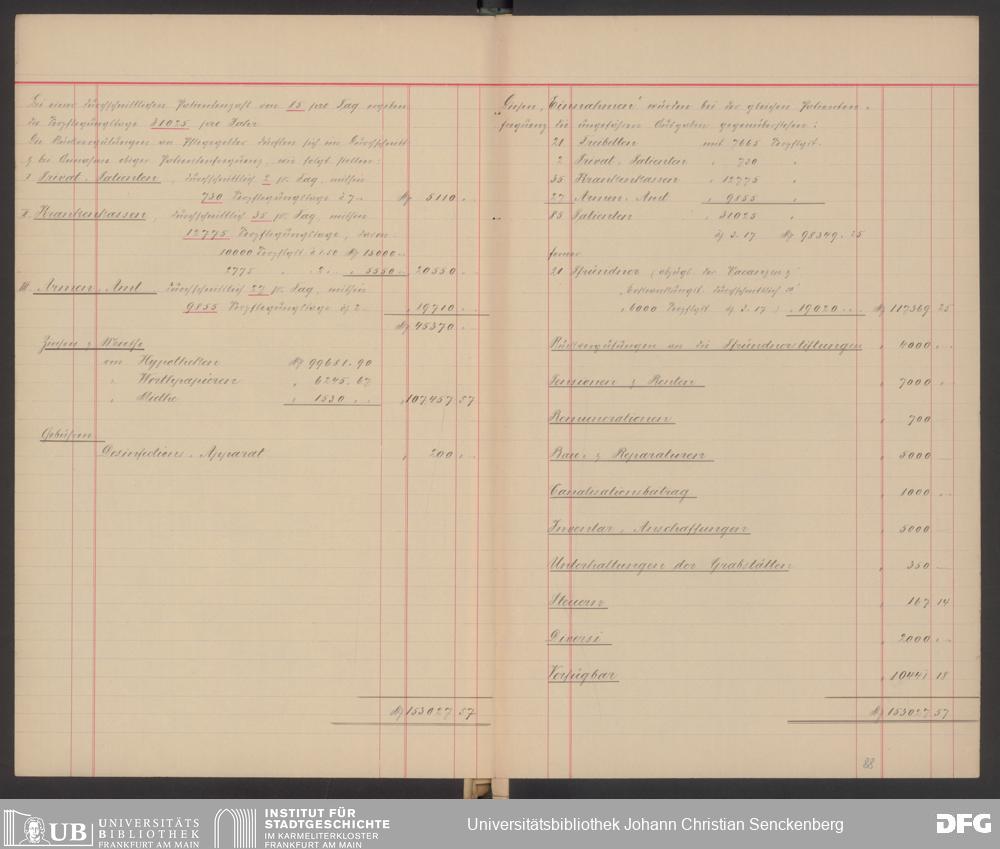 Bei einer durchschnittlichen Patientenzahl von 85 pro Tag ergeben
die Verpflegungstage 31025 pro Jahr
Die Rückvergütungen an Pflegegelder dürften sich im Durchschnitt
& bei Annahme obiger Patientenfrequenz, wie folgt stellen:
I. Privat-Patienten, durchschnittlich 2 pr. Tag, mithin
730 Verpflegungstage à 7.- M 5110
II. Krankenkassen, durchschnittlich 35 pr. Tag, mithin
12775 Verpflegungstage, davon
10000 Verpflgst. à 1.50 M 15000
2775 " " 2.- " 5550 " 20550
III. Armen-Amt durchschnittlich 27 pr. Tag, mithin
9855 Verpflegungstage à 2.- " 19710
M 45370
Zinsen &
von Hypotheken M 99681.90
" Werthpapieren " 6245.67
" Miethe " 1530 " 107457 57
Gebühren
Desinfections-Apparat " 200
M 153027 57
Diesen "Einnahmen" würden bei der gleichen Patienten-
frequenz die ungefähren Ausgaben gegenüberstehen:
21 Freibetten mit 7665 Verpflgst.
2 Privat-Patienten " 730 "
35 Krankenkassen " 12775 "
27 Armen-Amt " 9855 "
85 Patienten " 31025 "
à 3.17 M 98349.25
ferner
20 Pfründner (abzügl. der Vacanzen &
durchschnittlich
6000 Verpflgst. à 3.17) " 19020 M 117369 25
Rückvergütungen an die Pfründnerstiftungen " 4000
Pensionen & Renten " 7000
Remunerationen " 700
Bau- & Reparaturen " 5000
Canalisationsbeitrag " 1000
Inventar-Anschaffungen " 5000
Unterhaltungen der Grabstätten " 350
Steuern " 167 14
Diversi " 2000
Verfügbar " 10441 18
M 153027 57
88
UB UNIVERSITÄTS
BIBLIOTHEK
FRANKFURT AM MAIN
INSTITUT FÜR
STADTGESCHICHTE
IM KARMELITERKLOSTER
FRANKFURT AM MAIN
Universitätsbibliothek Johann Christian Senckenberg
DFG